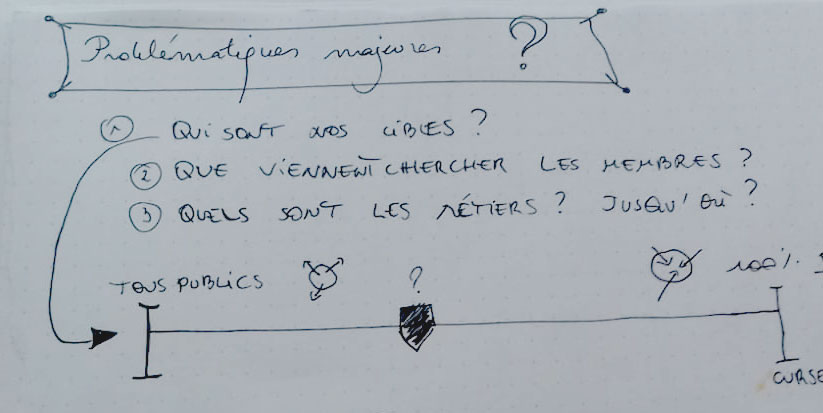 Problématiques majeures ?
1 QUI SONT NOS CIBLES ?
2 QUE VIENNENT CHERCHER LES MEMBRES ?
3 QUELS SONT LES MÉTIERS ? JUSQU'OÙ ?
TOUS PUBLICS ? 100%